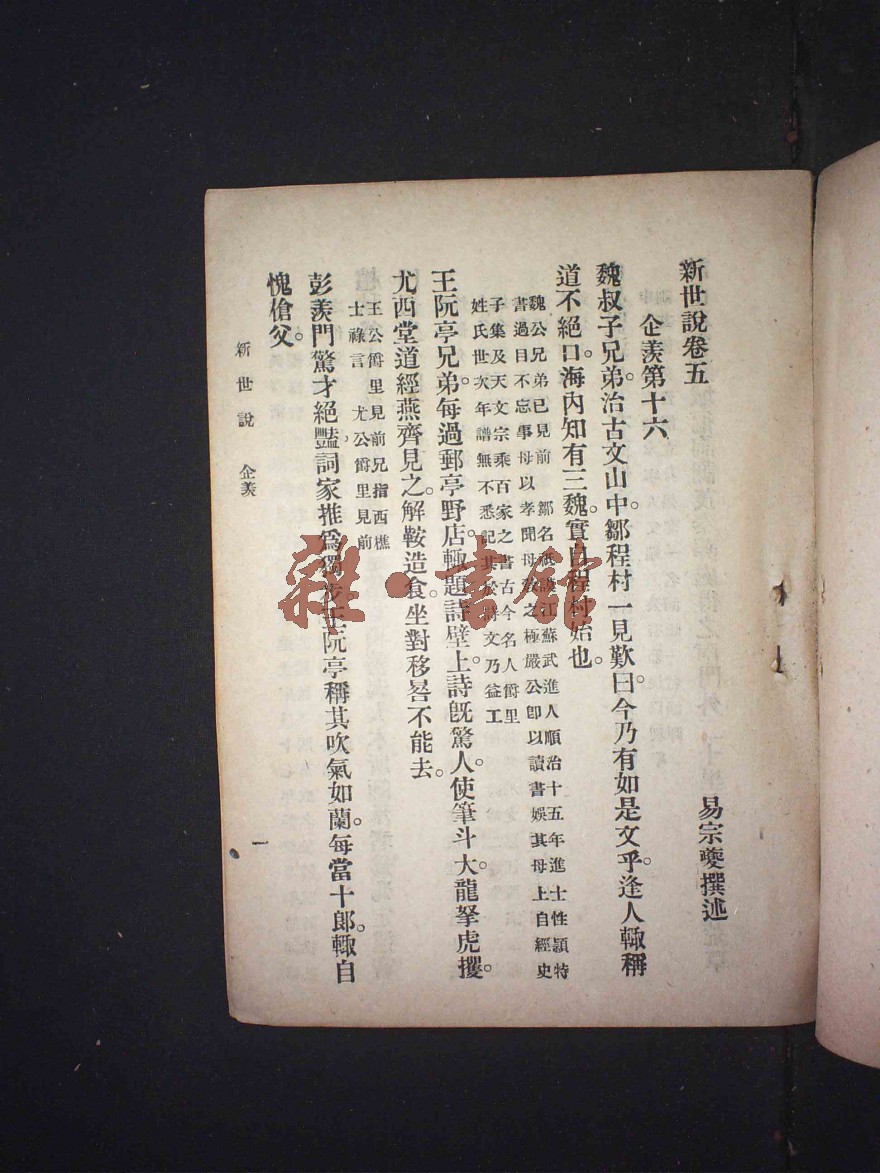 新世說卷五
易宗夔撰述
企羨第十六
魏叔子兄弟治古文山中。鄒程村一見歎曰。今乃有如是文乎。逢人輙稱
道不絕口。海內知有三魏。實自程村始也。
魏公兄弟已見前 鄒名祗謨江蘇武進人順治十五年進士性穎特
書過目不忘事母以孝聞母敎之極嚴公卽以讀書娛其母上自經史
子集及天文宗乘百家之書古今名人爵里
姓氏世次年譜無不悉記其於詩文乃益工
王阮亭兄弟。每過郵亭野店。輙題詩壁上。詩旣驚人。使筆斗大。龍拏虎攫。
尤西堂道經燕齊見之。解鞍造食。坐對移晷不能去。
王公爵里見前兄指西樵
士祿言 尤公爵里見前
彭羨門驚才絕豔。詞家推爲獨步。王阮亭稱其吹氣如蘭。每當十郎。輙自
愧槍父。
新世說 企羨
一
雜·書館